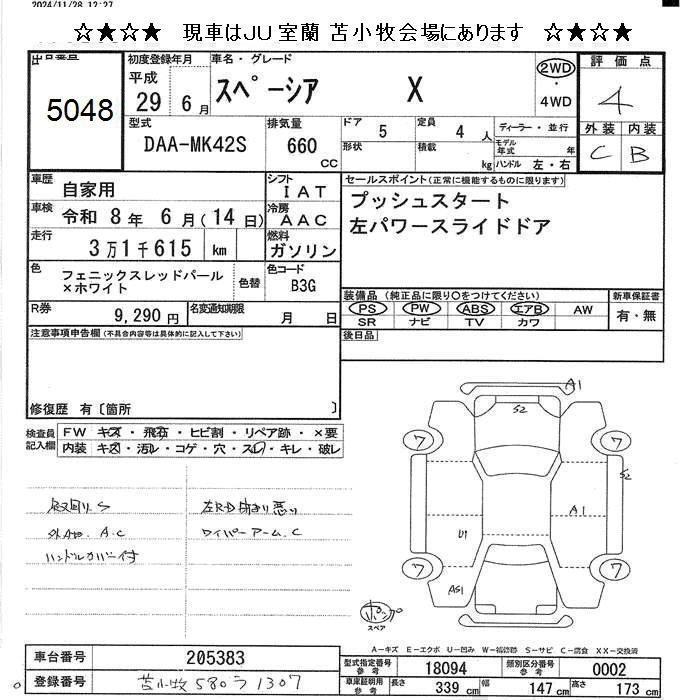 2024/11/28 12:27
☆★☆★ 現車はJU室蘭 苫小牧会場にあります ☆★☆★
出品番号
5048
初度登録年月
平成
29年 6月
車名・グレード
スペーシア X
2WD
・
4WD
評価点
4
外装 内装
C B
型式
DAA-MK42S
排気量
660
CC
ドア 5
定員 4 人
ディーラー・並行
形状
積載 kg
モデル年式 年
ハンドル 左・右
車歴
自家用
シフト
IAT
車検
令和 8年 6月(14日)
冷房
AAC
走行
3万1千615 km
燃料
ガソリン
色
フェニックスレッドパール
×ホワイト
色替
色コード
B3G
R券
9,290円
名変通知期限
月 日
セールスポイント(正常に機能するものに限ります)
プッシュスタート
左パワースライドドア
装備品 (純正品に限り○をつけてください)
新車保証書
PS PW ABS エアB AW
有・無
SR ナビ TV カワ
後日品
注意事項申告欄(不具合内容等は具体的に記入して下さい)
修復歴 有〔箇所 〕
検査員
記入欄
FW キズ・飛石・ヒビ割・リペア跡・×要
内装 キズ・汚レ・コゲ・穴・スレ・キレ・破レ
外 A.C
ハンドルカバー付
左R-D 閉まり悪い
ワイパーアーム.C
A1
S2
ワ
ワ
S2
A1
U1
ワ
ワ
AS1
スペア
A-キズ E-エクボ U-凹み W-補修跡 S-サビ C-腐食 XX-交換済
車台番号
205383
登録番号
苫小牧 580 ラ 1307
型式指定番号
参考
18094
類別区分番号
参考
0002
車庫証明用
参考
長さ 339 cm
幅 147 cm
高さ 173 cm